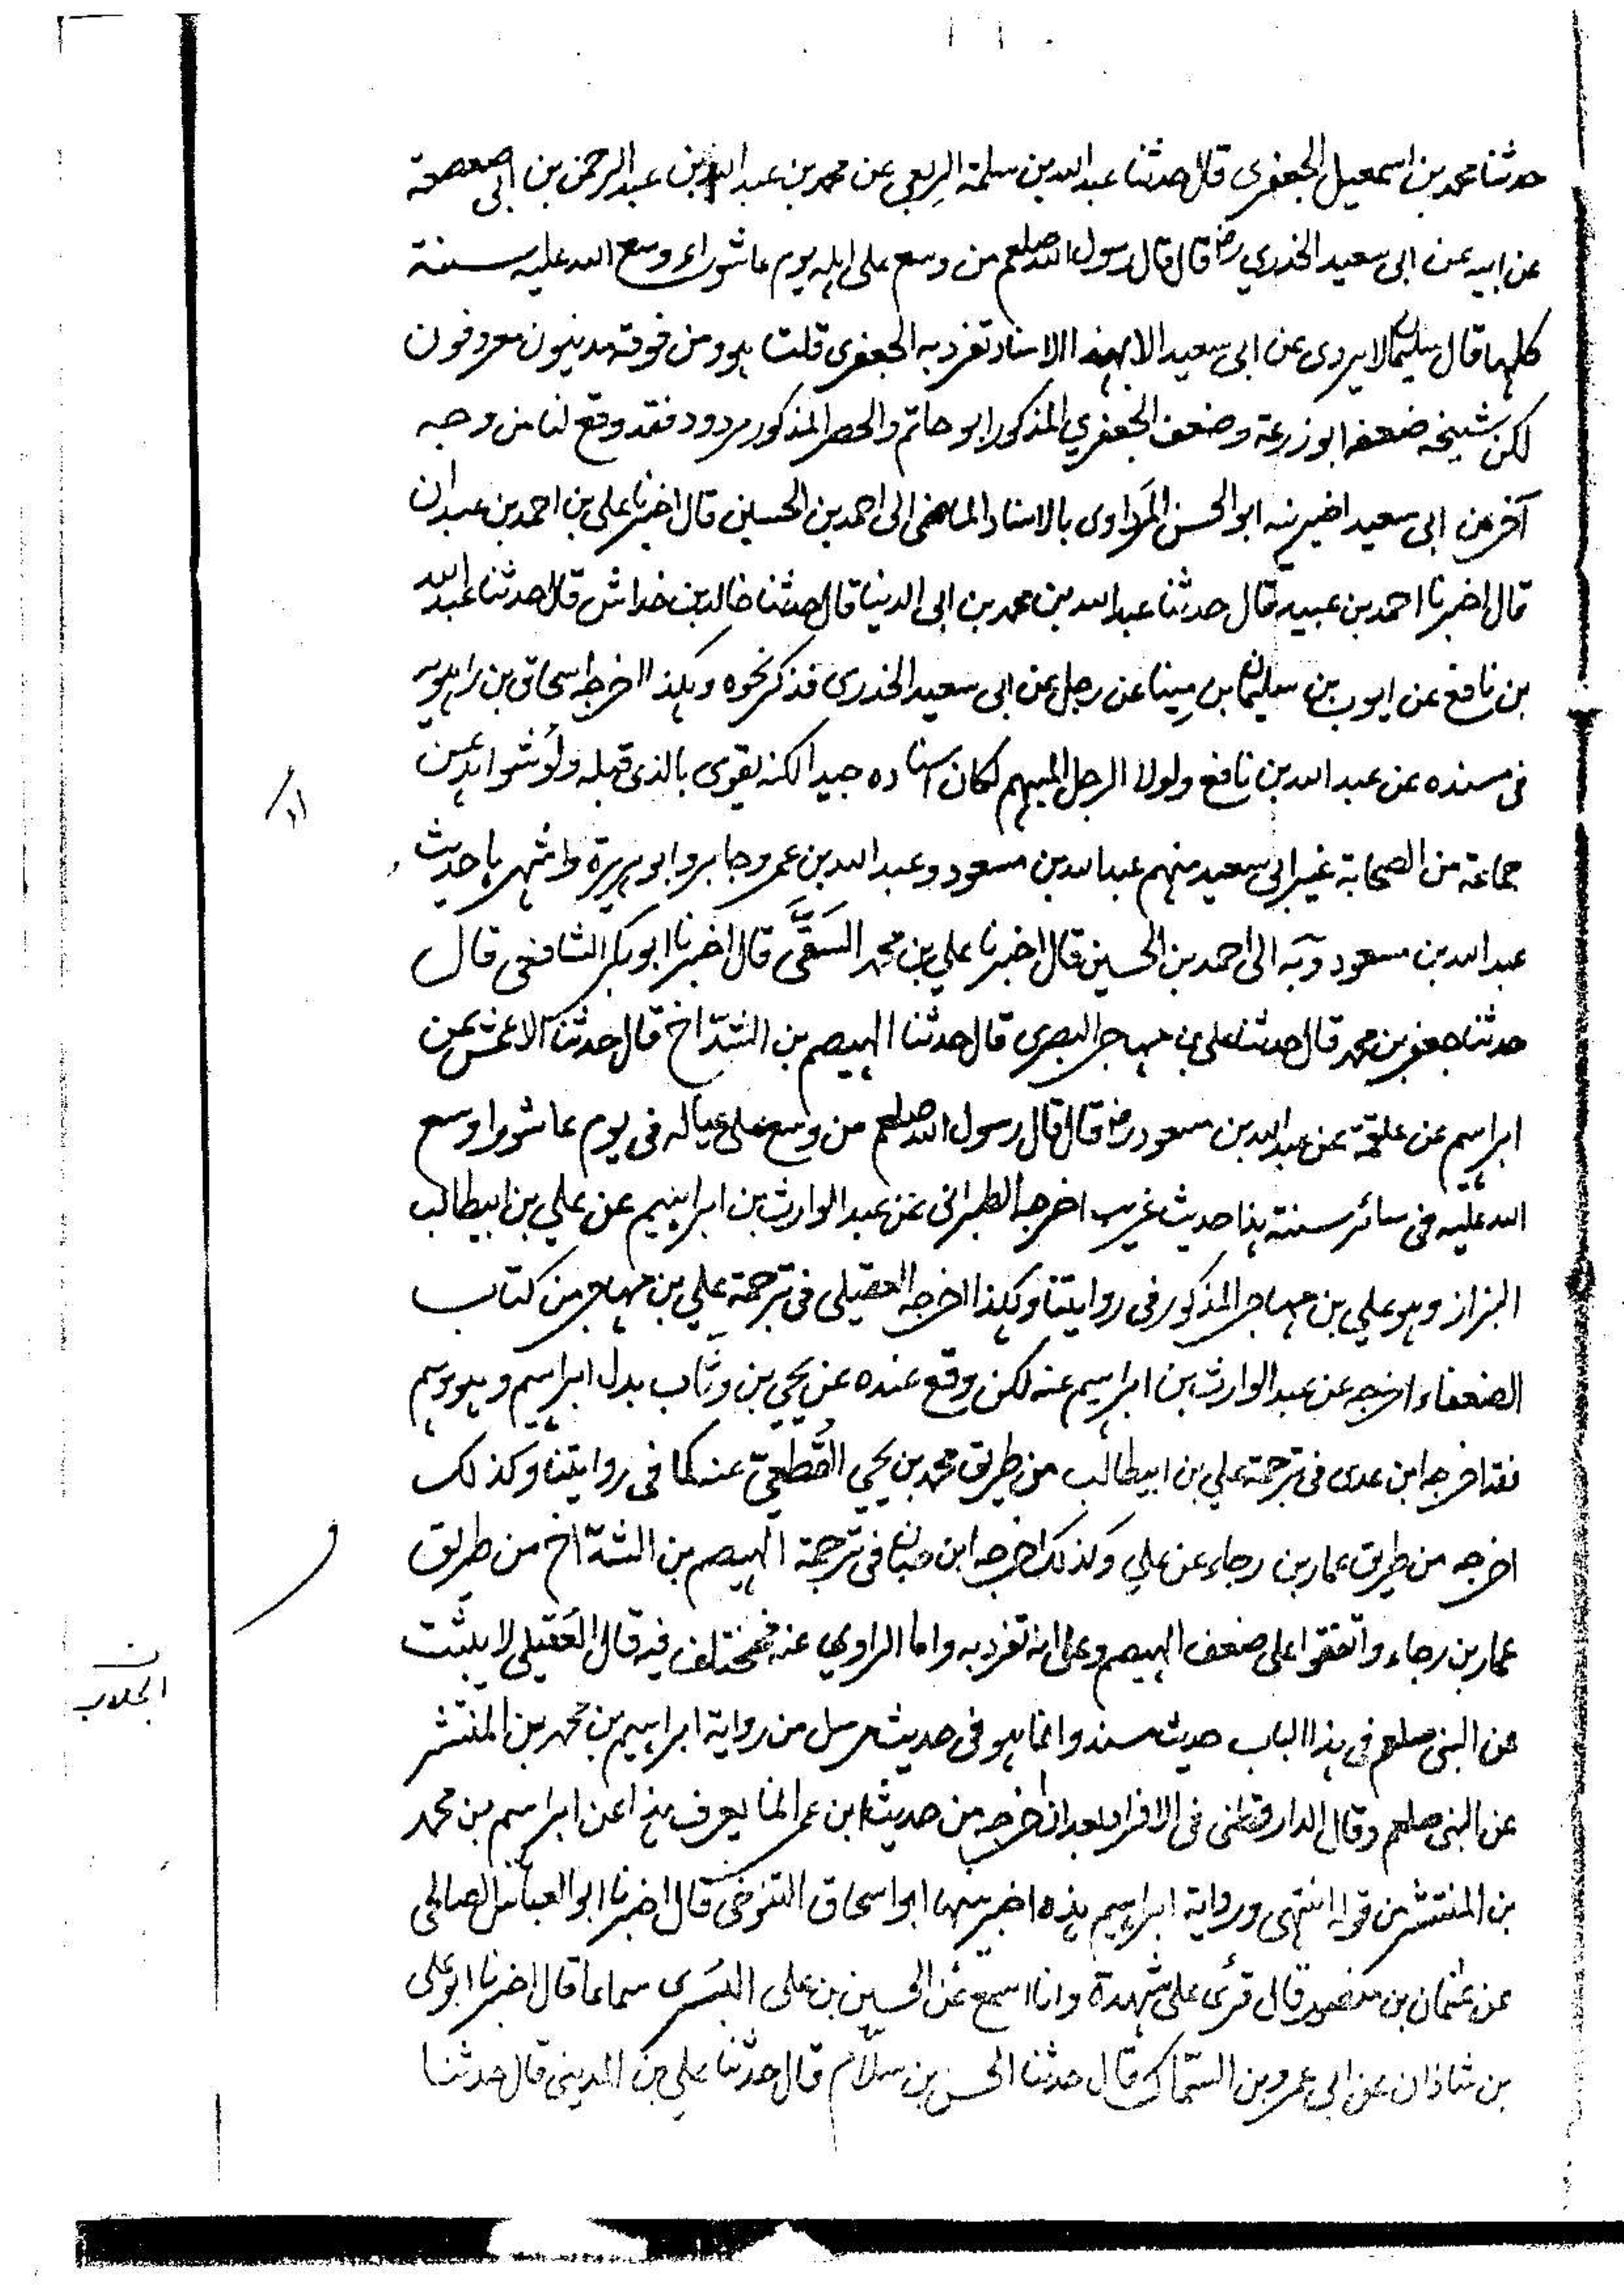 حدثنا محمد بن اسمعيل الجعفرى قال حدثنا عبد الله بن سلمة الربعى عن محمد بن عبد الله بن عبد الرحمن بن ابى صعصعة
عن ابيه عن ابى سعيد الخدري رض قال قال رسول الله صلعم من وسع على اهله يوم عاشوراء وسع الله عليه سنة
كلها قال سليمان لا يروى عن ابى سعيد الا بهذا الاسناد تفرد به الجعفرى قلت هو ومن فوقه مدنيون معروفون
لكن شيخه ضعفه ابو زرعة وضعف الجعفري المذكور ابو حاتم والحصر المذكور مردود فقد وقع لنا من وجه
آخر عن ابى سعيد اخبرنيه ابو الحسن المرداوى بالاسناد الماضى الى احمد بن الحسين قال اخبرنا على بن احمد بن عبدان
قال اخبرنا احمد بن عبيد قال حدثنا عبد الله بن محمد بن ابى الدنيا قال حدثنا خالد بن خداش قال حدثنا عبد الله
بن نافع عن ايوب بن سليمان بن مينا عن رجل عن ابى سعيد الخدرى فذكر نحوه وهكذا اخرجه اسحاق بن راهويه
فى مسنده عن عبد الله بن نافع ولولا الرجل المبهم لكان اسناده جيدا لكنه يقوى بالذى قبله وله شواهد عن
جماعة من الصحابة غير ابى سعيد منهم عبد الله بن مسعود وعبد الله بن عمر وجابر وابو هريرة واشهرها حديث
عبد الله بن مسعود وبه الى احمد بن الحسين قال اخبرنا علي بن محمد السقَّى قال اخبرنا ابو بكر الشافعى قال
حدثنا جعفر بن محمد قال حدثنا على بن مهاجر البصرى قال حدثنا الهيصم بن الشدّاخ قال حدثنا الاعمش عن
ابراهيم عن علقمة عن عبد الله بن مسعود رض قال قال رسول الله صلعم من وسع على عياله فى يوم عاشورا وسع
الله عليه فى سائر سنته هذا حديث غريب اخرجه الطبرانى عن عبد الوارث بن ابراهيم عن علي بن ابيطالب
البزاز وهو علي بن مهاجر المذكور فى روايتنا وهكذا اخرجه العقيلى فى ترجمة علي بن مهاجر من كتاب
الضعفاء اخرجه عن عبد الوارث بن ابراهيم عنه لكن وقع عنده عن يحيي بن وثاب بدل ابراهيم وهو وهم
فقد اخرجه ابن عدى فى ترجمة علي بن ابيطالب من طريق محمد بن يحيي القُطَعيّ عنه كما فى روايتنا وكذلك
اخرجه من طريق عمار بن رجاء عن علي وكذلك اخرجه ابن حبان فى ترجمة الهيصم بن الشدّاخ من طريق
عمار بن رجاء واتفقوا على ضعف الهيصم وعلى انه تفرد به واما الراوي عنه فمختلف فيه قال العُقيلى لا يثبت
عن النبى صلعم فى هذا الباب حديث مسند وانما هو فى حديث مرسل من رواية ابراهيم بن محمد بن المنتشر
عن النبى صلعم وقال الدارقطنى فى الافراد بعد ان اخرجه من حديث ابن عمر انما يعرف هذا عن ابراهيم بن محمد
بن المنتشر من قوله انتهى ورواية ابراهيم هذه اخبرنيها ابو اسحاق التنوخى قال اخبرنا ابو العباس الصالحى
عن عثمان بن منصور قال قرئ على شهدة وانا اسمع عن الحسين بن على البُسْرى سماعا قال اخبرنا ابو على
بن شاذان عن ابى عمرو بن السمّاك قال حدثنا الحسن بن سلّام قال حدثنا علي بن المدينى قال حدثنا